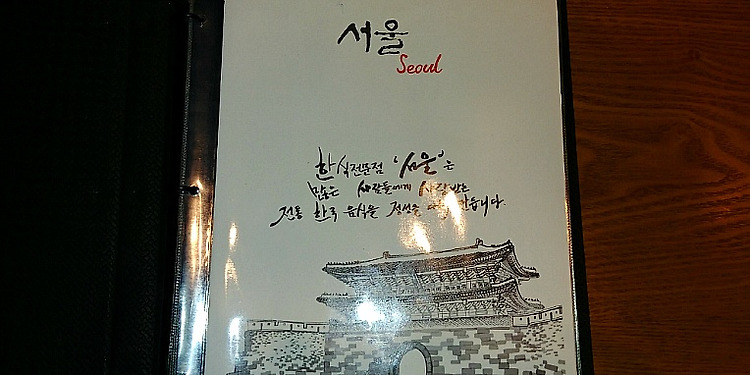 서울
Seoul
한식전문점 '서울'은
많은 사람들에게 사랑받는
전통 한국 음식을 정성을 만듭니다.